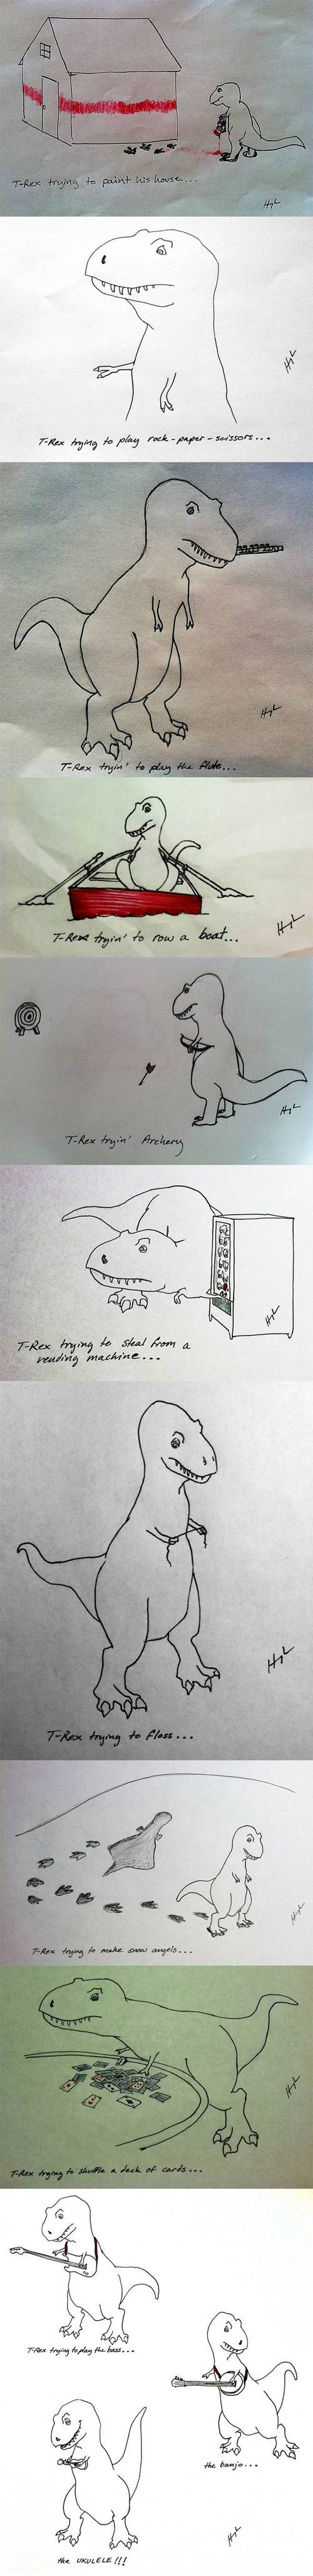 T-Rex trying to paint his house...
HyL
T-Rex trying to play rock-paper-scissors...
HyL
T-Rex tryin' to play the flute...
HyL
T-Rex tryin' to row a boat...
HyL
T-Rex tryin' Archery
HyL
T-Rex trying to steal from a
vending machine...
HyL
T-Rex trying to floss...
HyL
T-Rex trying to make snow angels...
HyL
T-Rex trying to shuffle a deck of cards...
HyL
T-Rex trying to play the bass...
the banjo...
the UKULELE!!!
HyL